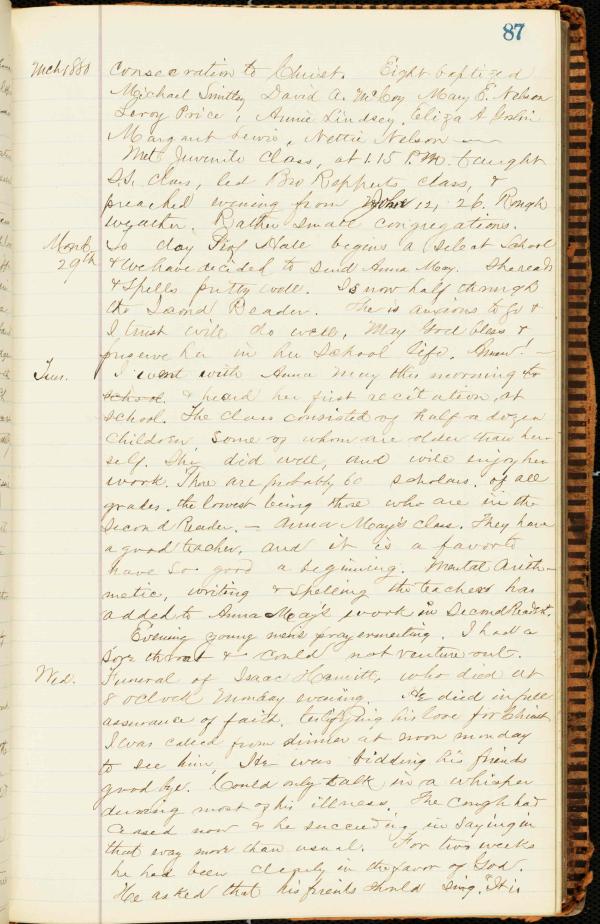 87
Mch 1880 consecration to Christ. Eight baptized
Michael Smitley David A. McCoy Mary E. Nelson
Leroy Price, Annie Lindsey, Eliza A
Margaret Lewis, Nettie Nelson —
Met Juvenile Class, at 1.15 P.M. taught
S.S. class, led Bro Rapperts class, &
preached evening from John 12, 26. Rough
weather. Rather small congregations.
Mond. To day Prof Hall begins a select School
29th & we have decided to send Anna May. She reads
& spells pretty well. Is now half through
the Second Reader. She is anxious to go &
I trust will do well. May God bless &
her in her School life. Amen! —
Tues. I went with Anna May this morning to
school & heard her first recitation at
school. The class consisted of half a dozen
children some of whom are older than her
self. She did well, and will enjoy her
work. There are probably 60 scholars, of all
grades, the lowest being those who are in the
Second Reader. — Anna May's class. They have
a good teacher, and it is a favor to
have so good a beginning. Mental Arith-
metic, writing & spelling the teacher has
added to Anna May's work in Second Reader.
Evening young men's prayermeeting. I had a
sore throat & could not venture out.
Wed. Funeral of Isaac who died at
8 oclock Monday evening. He died in full
assurance of faith, testifying his love for Christ
I was called from dinner at noon monday
to see him, He was bidding his friends
good bye. Could only talk in a whisper
during most of his illness. The cough had
ceased now & he succeeding in saying in
that way more than usual. For two weeks
he had been deeply in the favor of God.
He asked that his friends should sing, "It is